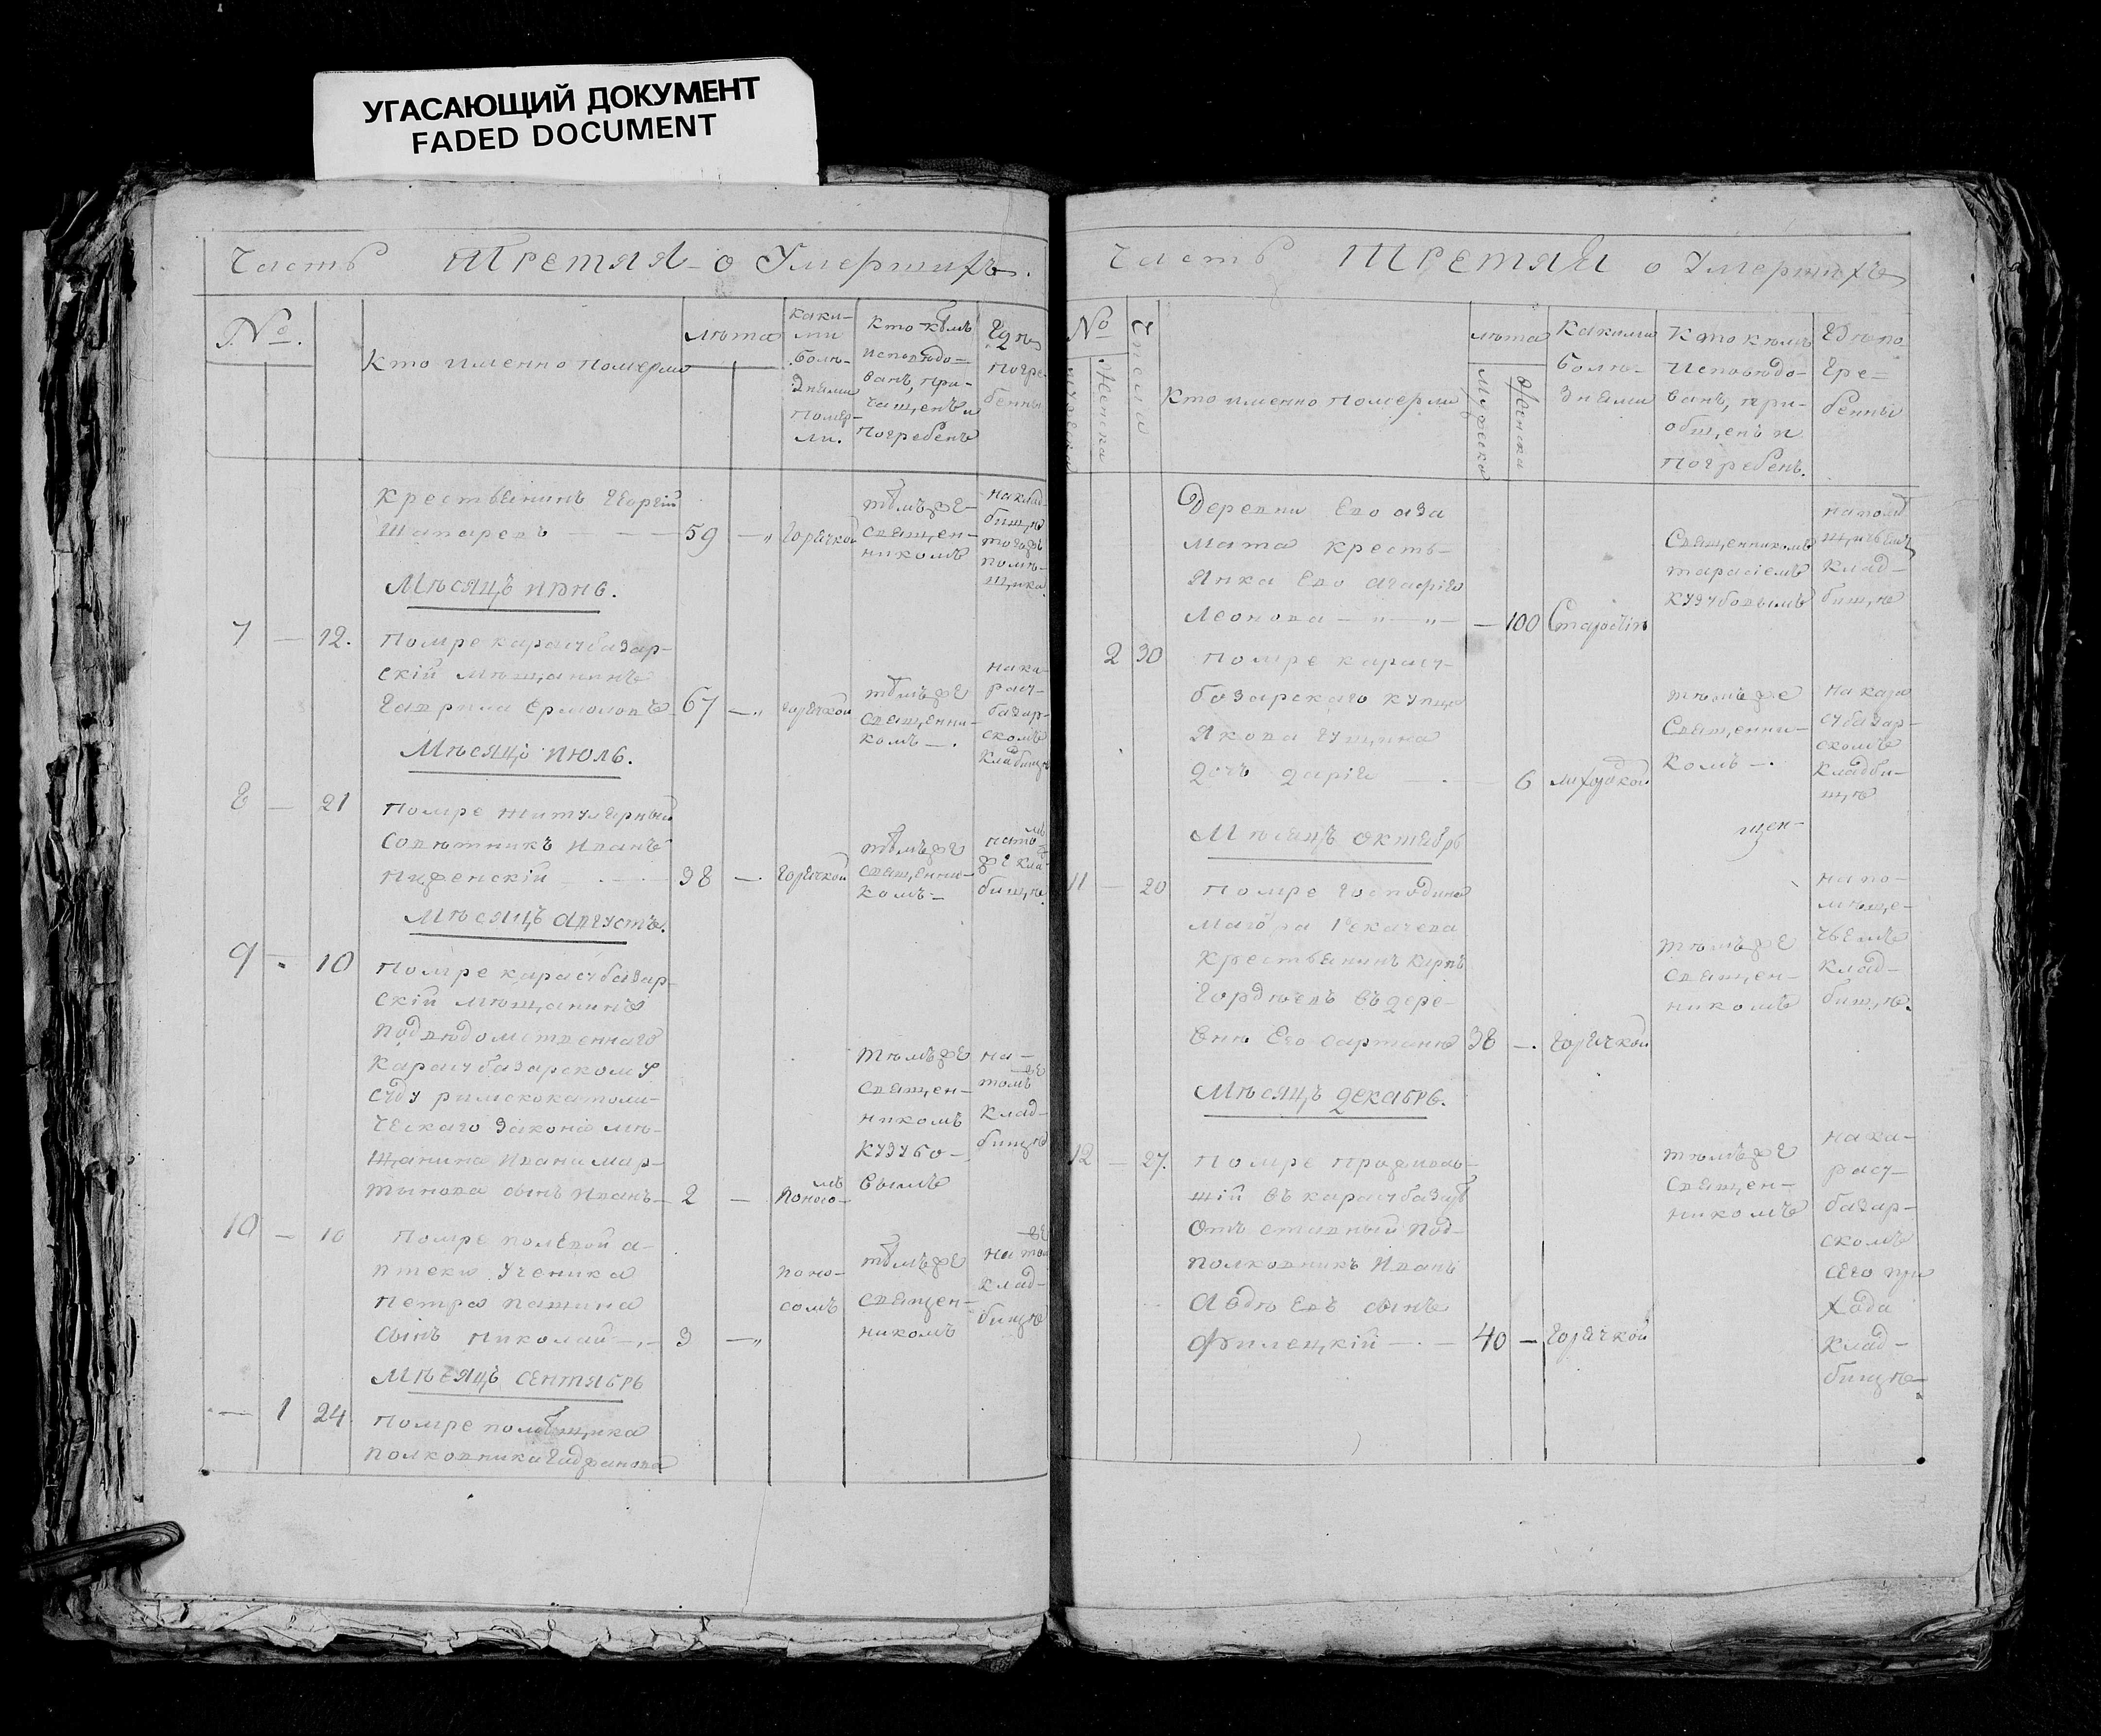 УГАСАЮЩИЙ ДОКУМЕНТ
FADED DOCUMENT
Часть Третяя о Умершихъ.
№.
Кто именно померли
лѣта
каки-
ми
болѣ-
знями
помер-
ли.
Кто кѣмъ
исповѣдо-
ванъ, при-
чащенъ и
погребенъ
Гдѣ
погре-
бенны
Крестьянинъ Георгій
59 —„ горячкой
тѣмъ же
священ-
никомъ
на клад
бищѣ
тогожъ
помѣ-
щика
Мѣсяцъ июнь.
7 — 12.
Помре карасубазар-
скій мѣщанинъ
Гаврила Ермоловъ 67 —„ горячкой
тѣмъ же
священни-
комъ —.
на ка-
расу-
базар-
скомъ
кладбищѣ
Мѣсяцъ июль.
8 — 21
Помре титулярный
Совѣтникъ Иванъ
38 — горячкой
тѣмъ же
священни-
комъ —
на томъ
же кла
бищѣ.
Мѣсяцъ августъ.
9 - 10
Помре карасубазар-
скій мѣщанинъ
подвѣдомственнаго
карасубазарскому
суду римскокатоли-
ческаго закона мѣ-
щанина Ивана Мар-
тинова сынъ Иванъ — 2 — поносо-
мъ
тѣмъ же
священ-
никомъ
Кузубо-
вымъ
на —
томъ же
клад-
бищѣ
10 — 10
Помре полевой а-
птеки ученика
Петра Пашина
сынъ Николай —„— 3 —„
поно-
сомъ
тѣмъ же
священ-
никомъ
на том же
клад-
бищѣ
Мѣсяцъ сентябрь
— 1 24
Помре помѣщика
полковника
Часть Третяя о Умершихъ
№
Мужеска
Женска
Числа
Кто именно померли
лѣта
Мужеска
Женска
Какими
болѣ-
знями
Кто кѣмъ
исповѣдо-
ванъ, при-
общенъ и
погребенъ.
Гдѣ по
гре=
бенны
Деревни
кресть-
янка его Агафія
Леонова — „ — „ — — 100 Старости
Священникомъ
Тарасіемъ
Кузубовымъ
на помѣ
щичьемъ
клад-
бищѣ
2 30
Помре карасу-
базарскаго купца
Якова Гущина
дочь Дарія — . — 6 лихорадкой
тѣмъ же
Священни-
комъ —.
на кара
субазар-
скомъ
кладби-
щѣ
Мѣсяцъ октябрь
щен-
11 — 20
Помре господина
маіора
крестьянинъ Карпъ
Гордѣевъ въ дере-
внѣ его 38 —. горячкой
тѣмъ же
священ-
никомъ
на по-
мѣще-
чьемъ
клад-
бищѣ.
Мѣсяцъ декабрь.
12 — 27.
Помре проживаю-
щій въ карасубазарѣ
отъ ставный под-
полковникъ Иванъ
Авдѣевъ сынъ
Филецкій — . — 40 — горячкой
тѣмъ же
священ-
никомъ
на ка-
расу-
базар-
скомъ
сего при
хода
клад-
бищѣ